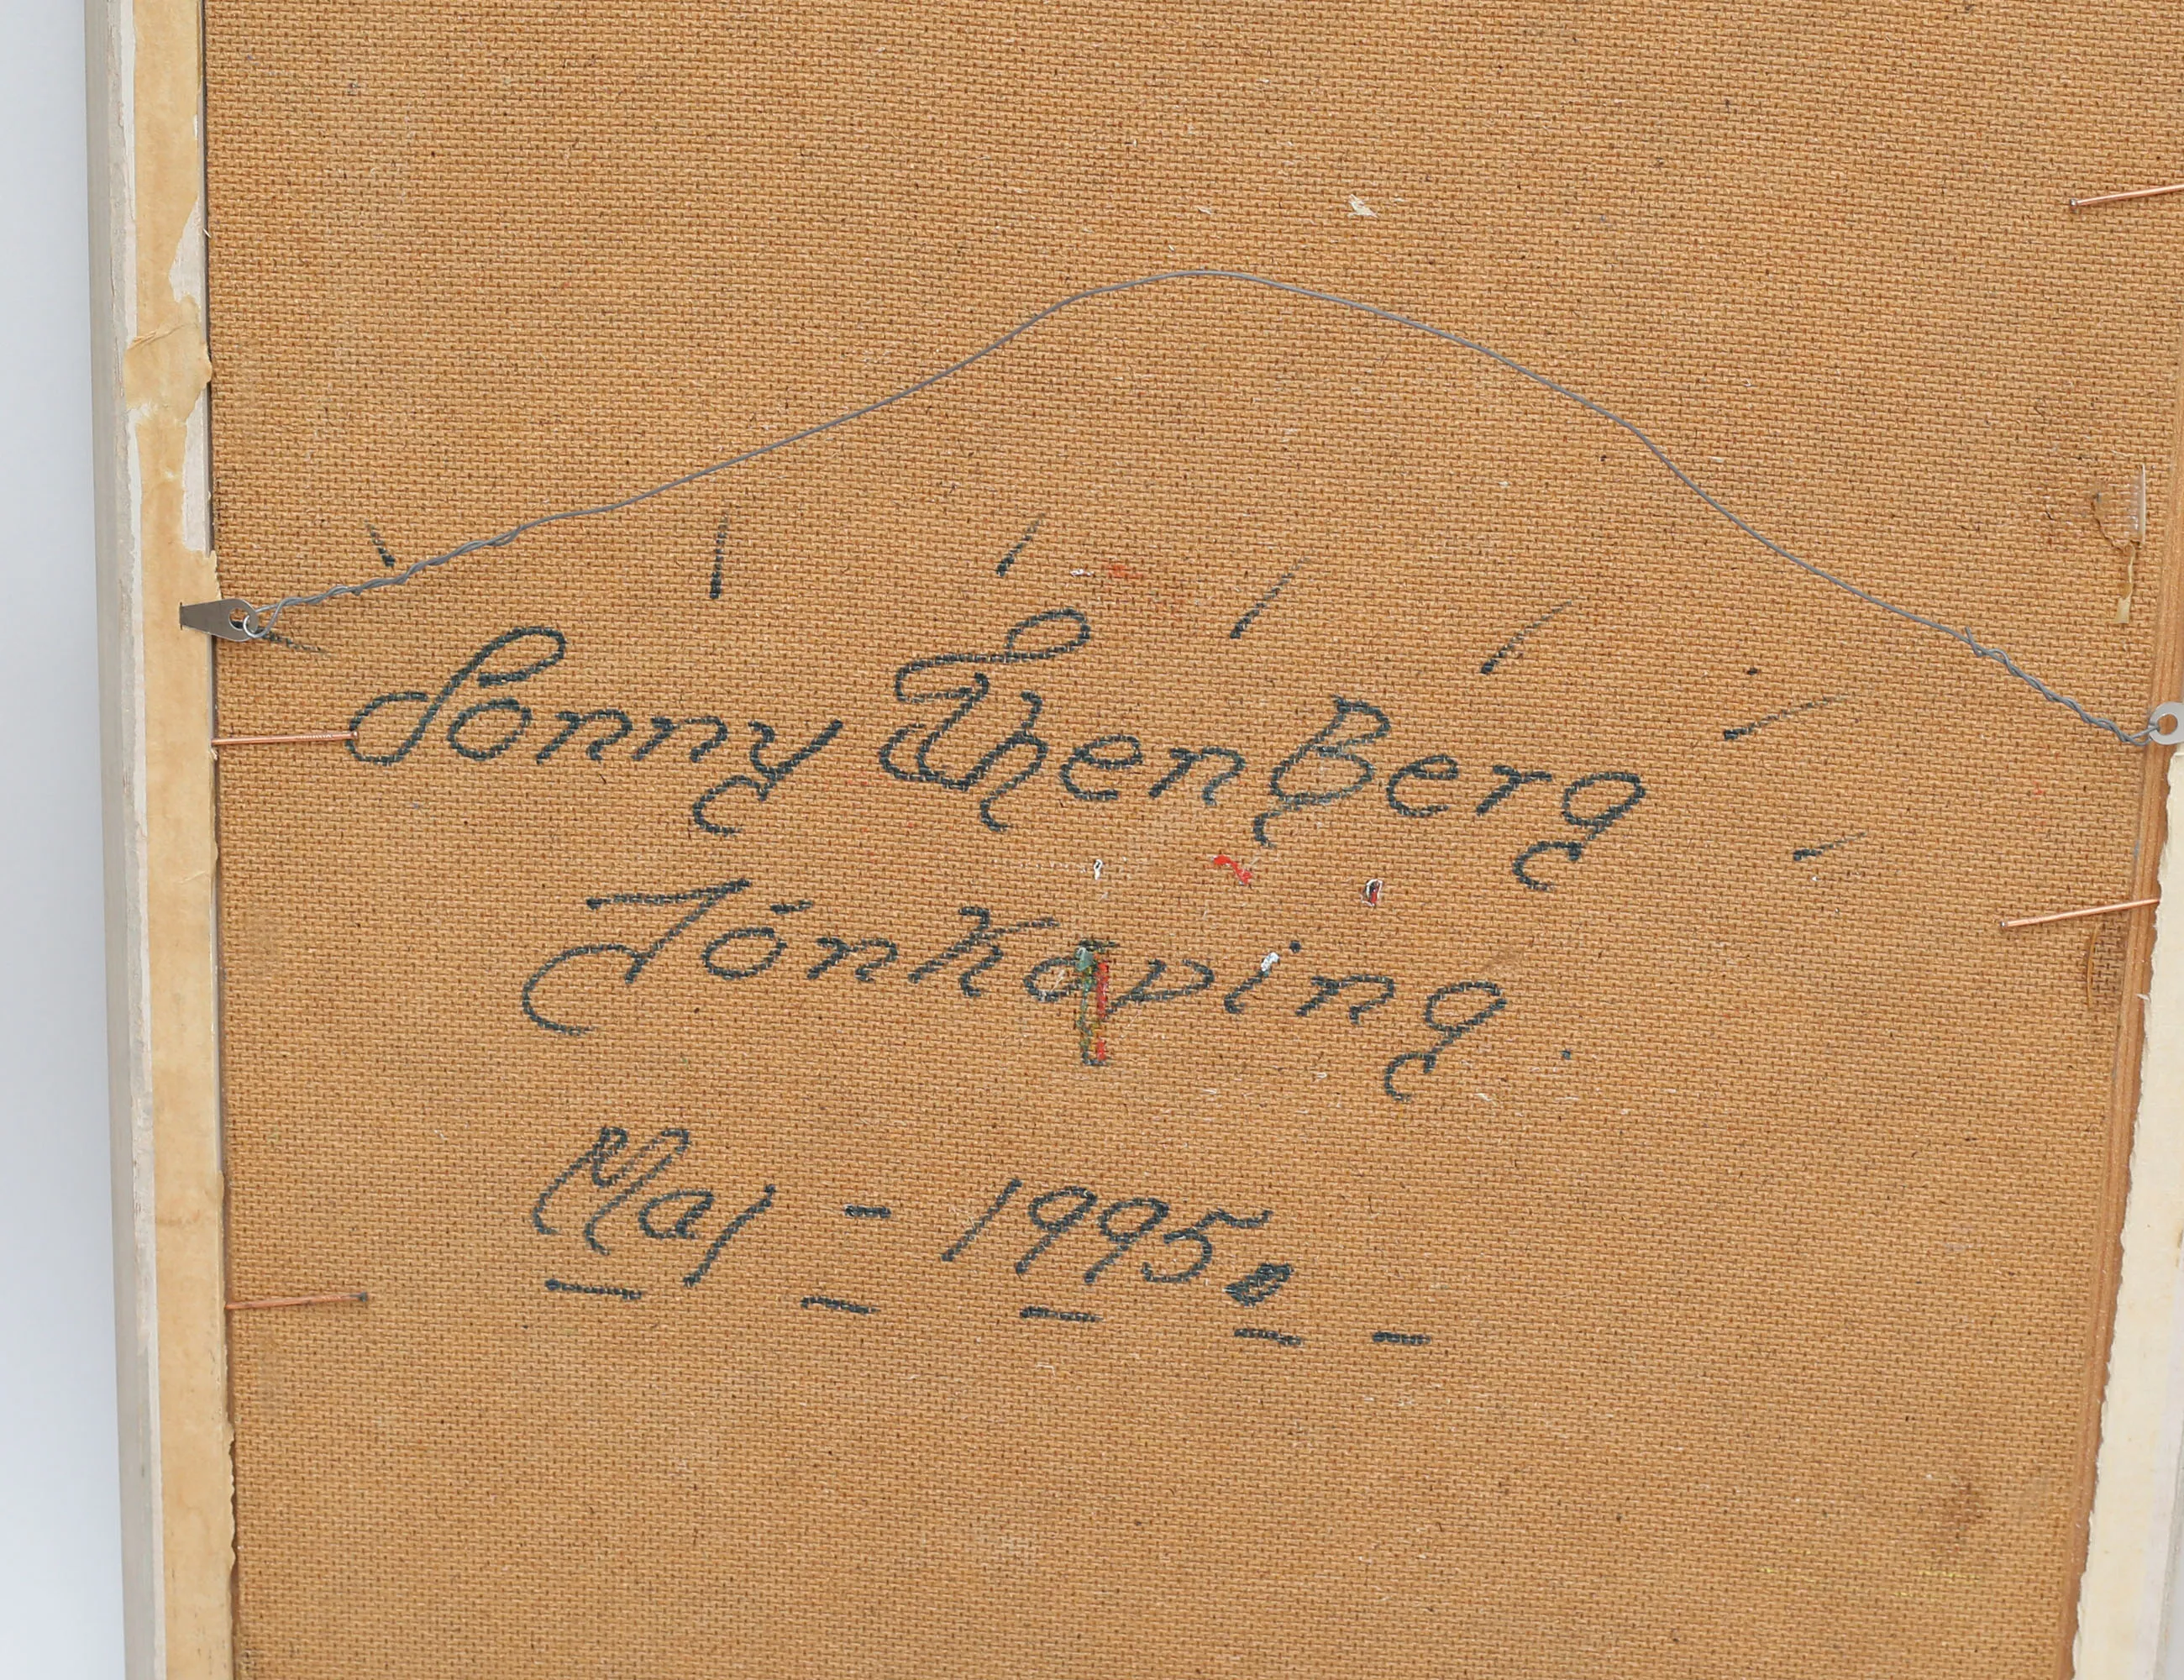 Sonny ThenBerg
Jönköping.
Maj - 1995.